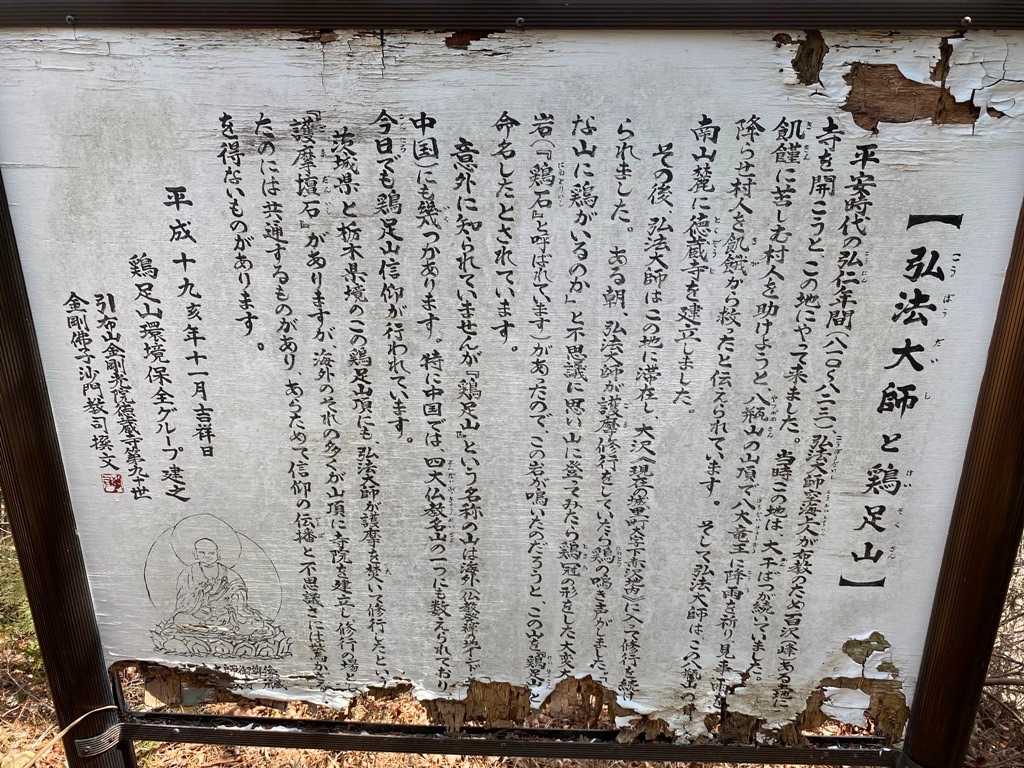 【弘法大師と鶏足山】
平安時代の弘仁年間(八一〇〜八二三)、弘法大師空海上人が布教のため百沢八峰ある処に
寺を開こうと、この地にやって来ました。当時この地は、大干ばつが続いていました。
飢饉に苦しむ村人を助けようと、八瓶山の山頂で八大竜王に降雨を祈り見事
降らせ村人を飢餓から救ったと伝えられています。そして弘法大師は、この八瓶山の
南山麓に徳蔵寺を建立しました。
その後、弘法大師はこの地に滞在し、大沢(現在の城里町大字下赤沢地内)に入って修行を続け
られました。ある朝、弘法大師が護摩修行をしていたら鶏の鳴き声がしました。「
な山に鶏がいるのか」と不思議に思い山に登ってみたら、鶏冠の形をした大変大
岩(『鶏石』と呼ばれています)があったので、この岩が鳴いたのだろうと、この山を『鶏足山
命名したとされています。
意外に知られていませんが『鶏足山』という名称の山は海外(仏教発祥の地インド
中国)にも幾つかあります。特に中国では、四大仏教名山の一つにも数えられており、
今日でも鶏足山信仰が行われています。
茨城県と栃木県境のこの鶏足山頂にも、弘法大師が護摩を焚いて修行したとい
『護摩壇石』がありますが、海外のそれの多くが山頂に寺院を建立し修行の場と
たのには共通するものがあり、あらためて信仰の伝播と不思議さには驚か
を得ないものがあります。
平成十九亥年十一月吉祥日
鶏足山環境保全グループ 建之
引布山金剛光院徳蔵寺第九十世
金剛佛子沙門教司 撰文